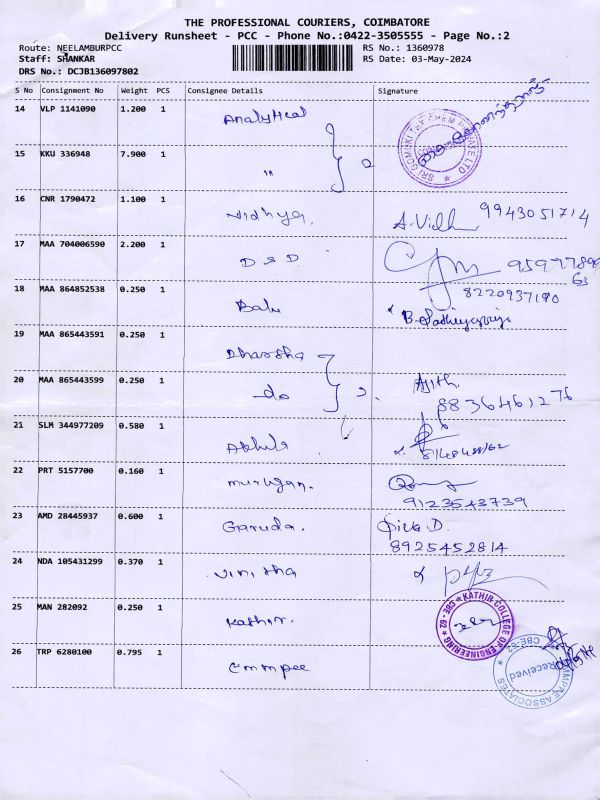 THE PROFESSIONAL COURIERS, COIMBATORE
Delivery Runsheet - PCC - Phone No.:0422-3505555 - Page No.:2
Route: NEELAMBURPCC
RS No.: 1360978
Staff: SHANKAR
RS Date: 03-May-2024
DRS No.: DCJB136097802
S No Consignment No Weight PCS Consignee Details Signature
14 VLP 1141090 1.200 1 Analytical
SRI GOMUKI
15 KKU 336948 7.900 1 " 2
16 CNR 1790472 1.100 1 Vidhya. A.Vidh 9943051714
17 MAA 704006590 2.200 1 D & D
18 MAA 864852538 0.250 1 Babu 8220937190
19 MAA 865443591 0.250 1
20 MAA 865443599 0.250 1 -do 2. Ajith.
8836461276
21 SLM 344977209 0.580 1
22 PRT 5157700 0.160 1 murugan.
9123543739
23 AMD 28445937 0.600 1 Garuda.
8925452814
24 NDA 105431299 0.370 1
25 MAN 282092 0.250 1 Kathir.
KATHIR COLLEGE OF ENGINEERING ★ CBE - 62 ★
26 TRP 6280100 0.795 1 Emmpee
ASSOCIATES CBE-62
Received